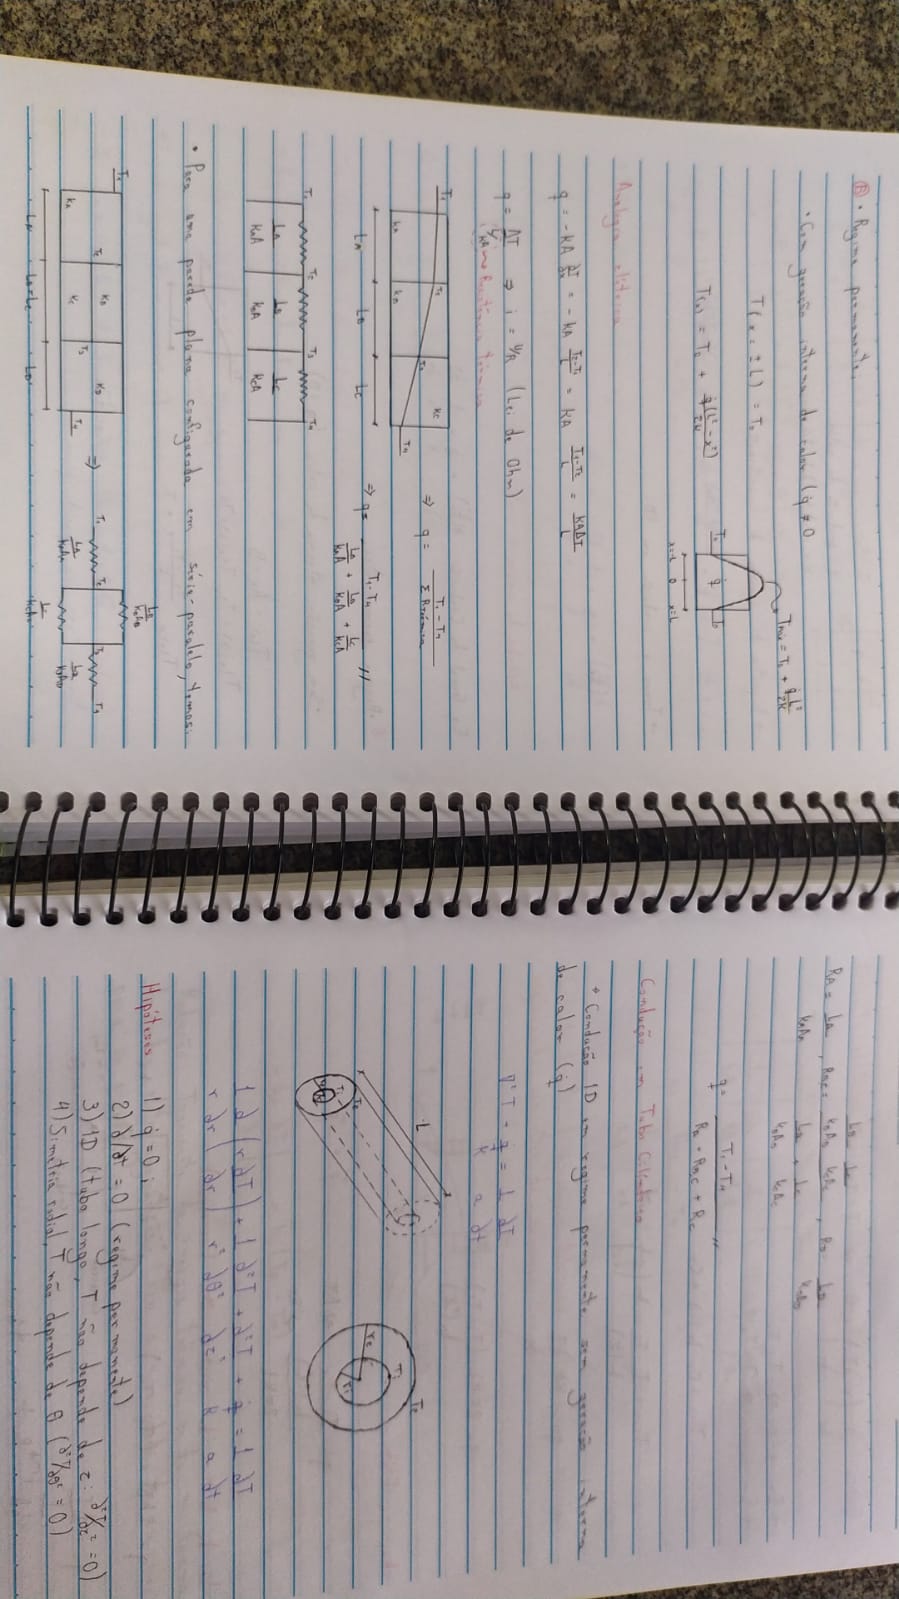 (B) • Regime permanente.
• Com geração interna de calor (q̇ ≠ 0
T(x = ± L) = T₀
T(x) = T₀ + q̇(L² - x²)/2k
T₀
q̇
x=-L 0 x=L
Tmáx = T₀ + q̇L²/2k
Analogia elétrica
q = -kA dT/dx = -kA T₂-T₁/L = kA T₁-T₂/L = kAΔT/L
q = ΔT/(L/kA) ⇒ i = U/R (Lei de Ohm)
Resistência térmica
T₁ T₂ T₃ T₄
kA kB kC
LA LB LC
⇒ q = T₁ - T₄ / Σ Rtérmica
⇒ q = T₁ - T₄ / LA/kAA + LB/kBA + LC/kCA //
T₁ T₂ T₃ T₄
LA/kAA LB/kBA LC/kCA
• Para uma parede plana configurada em série-paralelo, temos:
T₁ T₂ T₃ T₄
kA kB kC kD
LA LB=LC LD
⇒ T₁ T₂ T₃ T₄
RA = LA/kAAA , RBC = LB/kBAB LC/kCAC / LB/kBAB + LC/kCAC , RD LD/kDAD
q = T₁ - T₄ //
Condução em Tubo Cilíndrico
• Condução 1D em regime permanente sem geração interna
de calor (q̇)
∇²T + q̇/k = 1/α ∂T/∂t
L
1/r ∂/∂r (r ∂T/∂r) + 1/r² ∂²T/∂θ² + ∂²T/∂z² + q̇/k = 1/α ∂T/∂t
Hipóteses 1) q̇ = 0;
2) ∂/∂t = 0 (regime permanente)
3) 1D (tubo longo, T não depende de z: ∂²T/∂z² = 0)
4) Simetria radial, T não depende de θ (∂²T/∂θ² = 0)